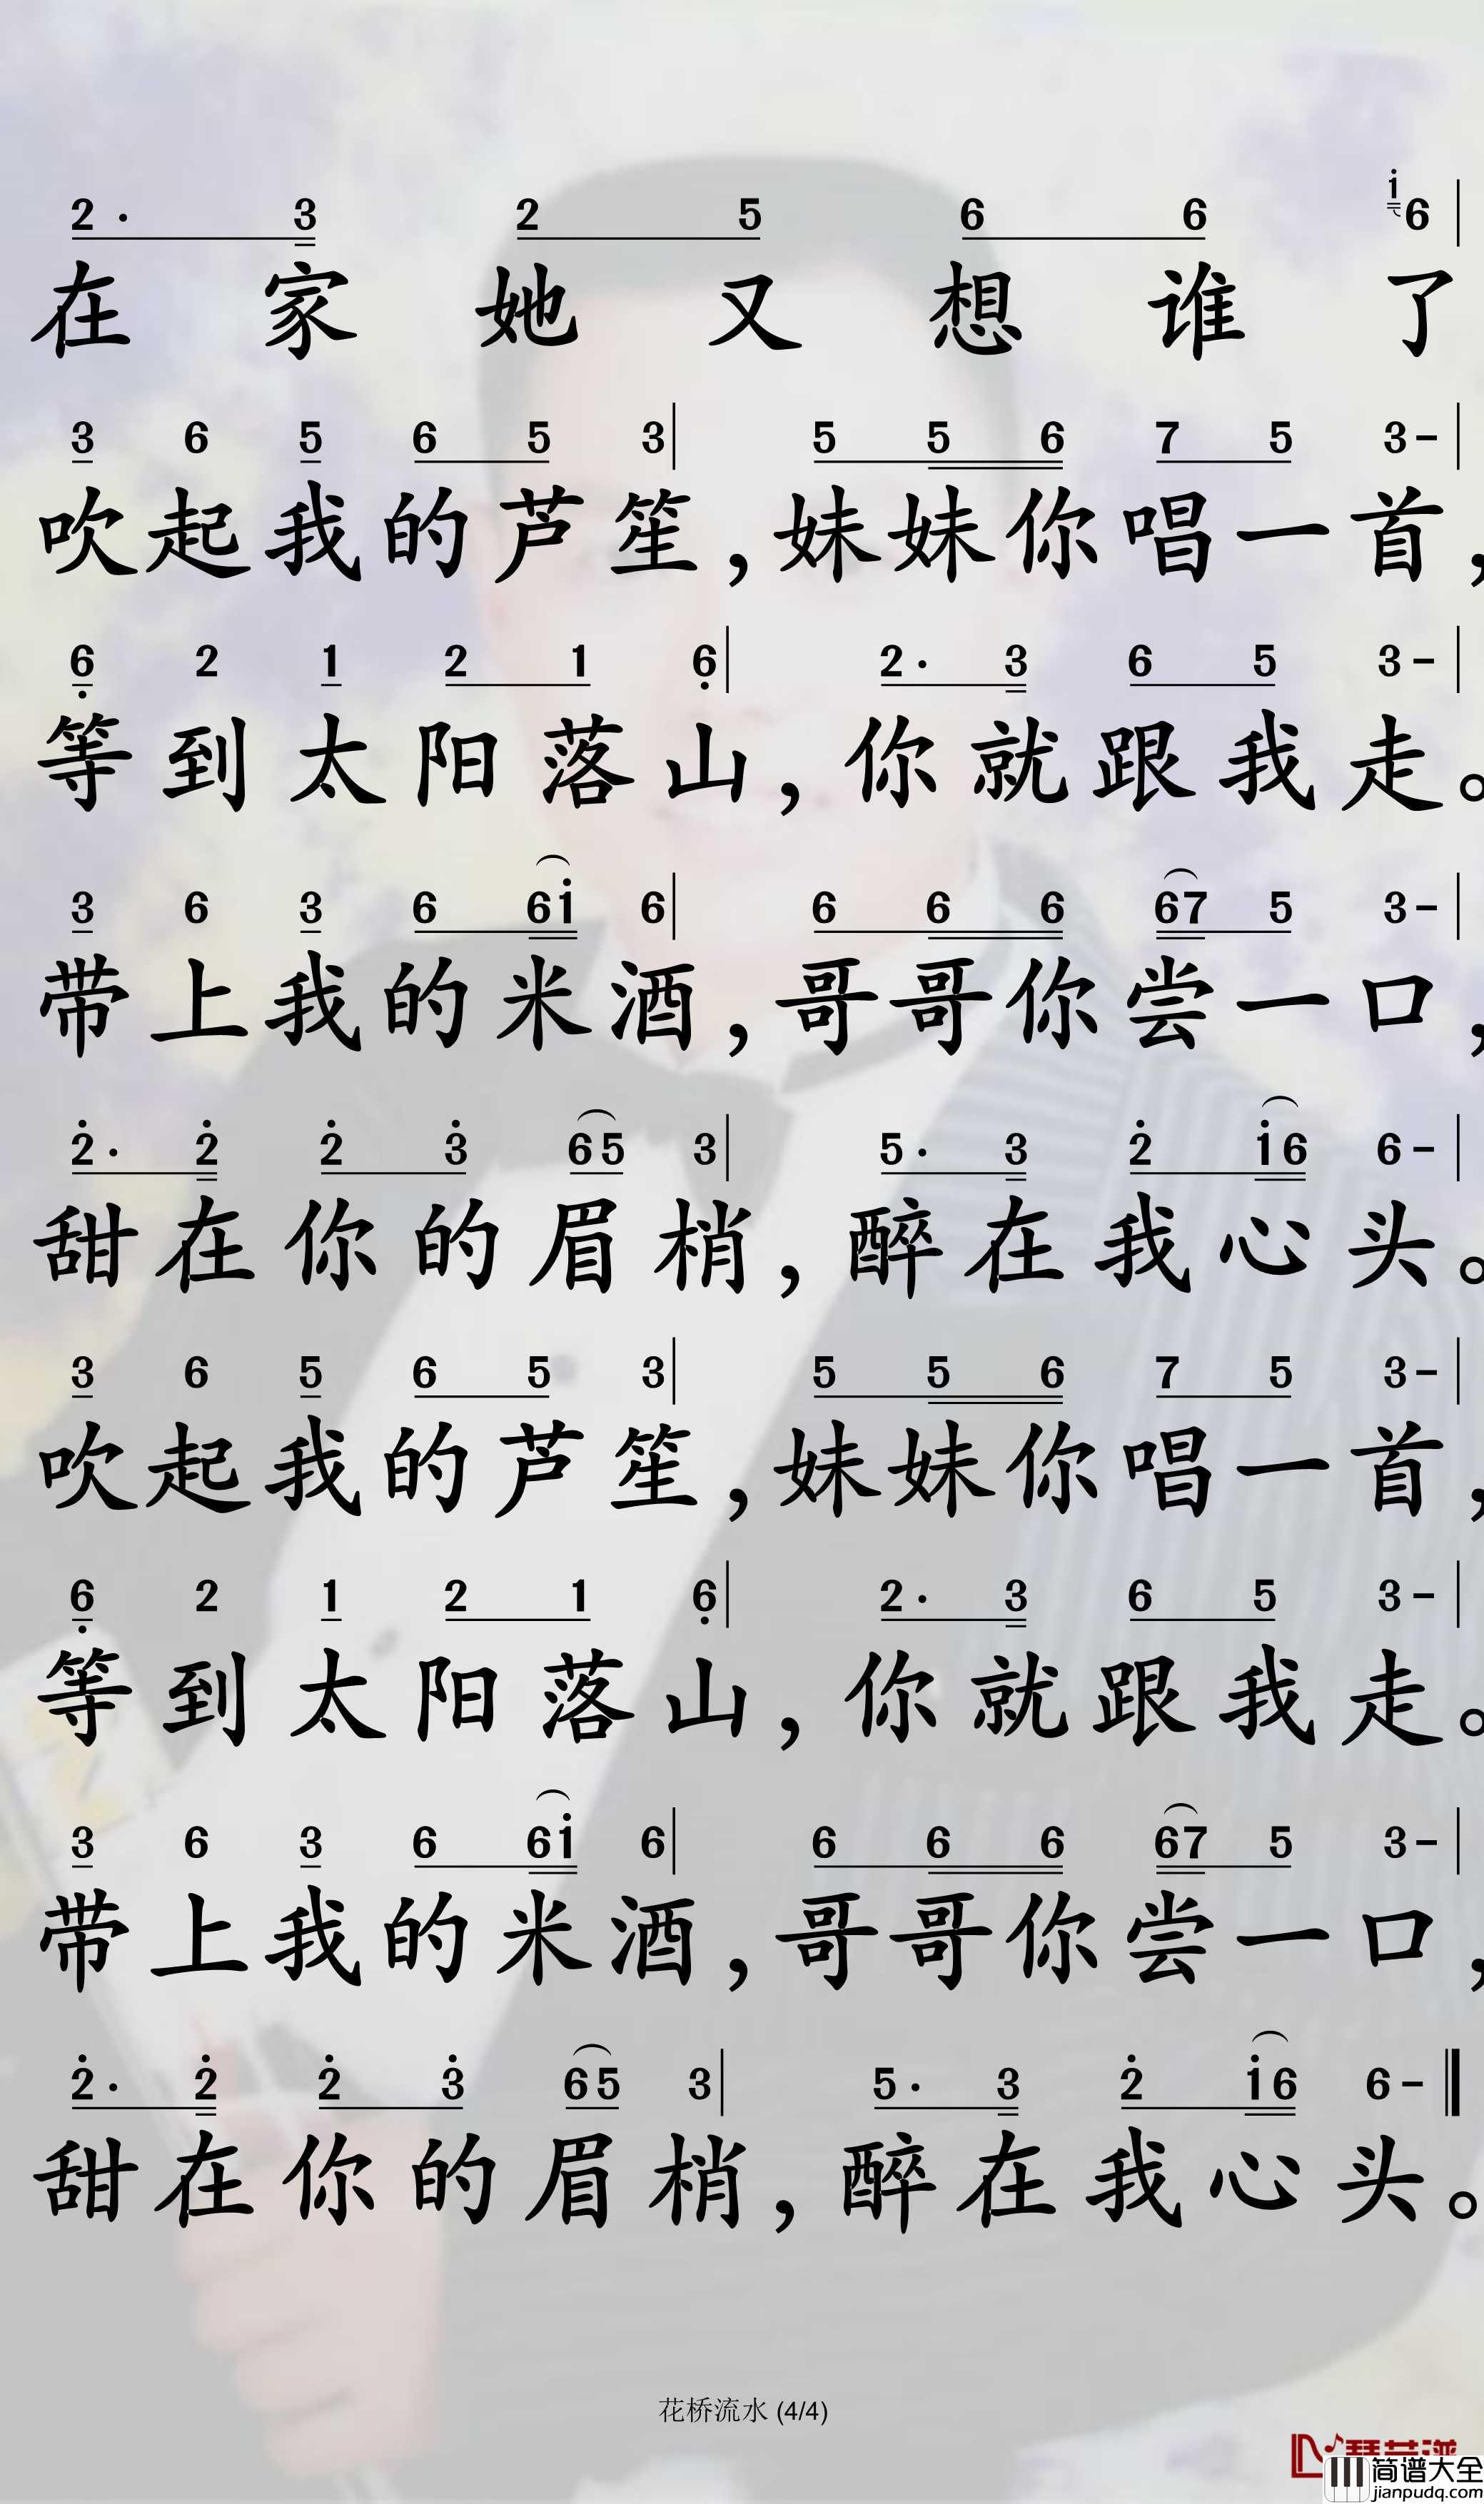 2· 3 2 5 6 6 i6|
在家她又想谁了
3 6 5 6 5 3| 5 5 6 7 5 3-|
吹起我的芦笙,妹妹你唱一首,
6 2 1 2 1 6| 2· 3 6 5 3-|
等到太阳落山,你就跟我走。
3 6 3 6 6i 6| 6 6 6 67 5 3-|
带上我的米酒,哥哥你尝一口,
2· 2 2 3 65 3| 5· 3 2 i6 6-|
甜在你的眉梢,醉在我心头。
3 6 5 6 5 3| 5 5 6 7 5 3-|
吹起我的芦笙,妹妹你唱一首,
6 2 1 2 1 6| 2· 3 6 5 3-|
等到太阳落山,你就跟我走。
3 6 3 6 6i 6| 6 6 6 67 5 3-|
带上我的米酒,哥哥你尝一口,
2· 2 2 3 65 3| 5· 3 2 i6 6-‖
甜在你的眉梢,醉在我心头。
花桥流水 (4/4)
简谱大全
jianpudq.com